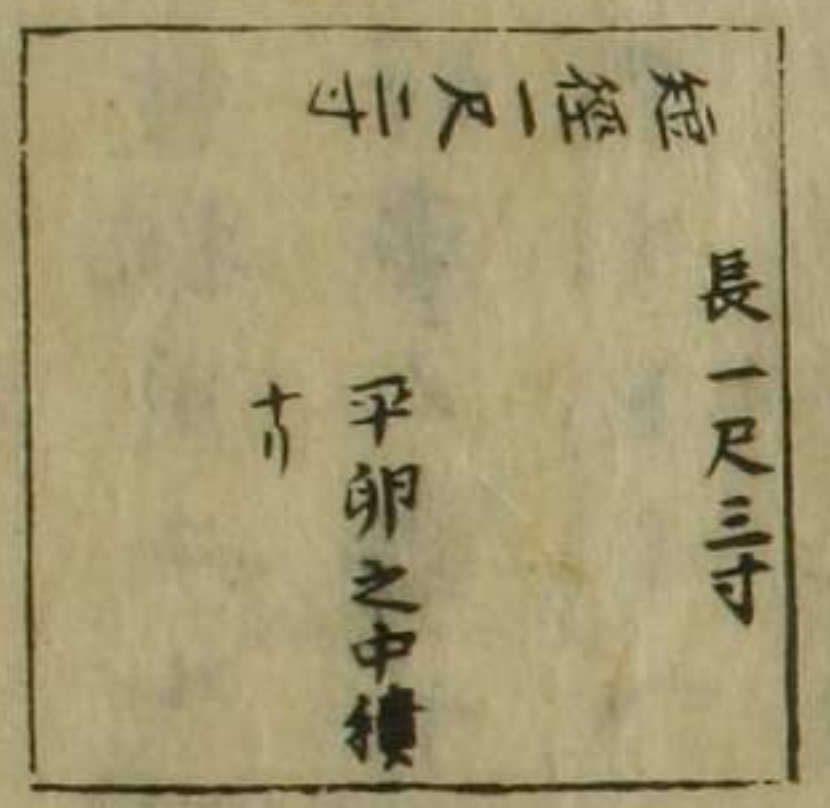 短徑一尺二寸
長一尺三寸
平卵之中積